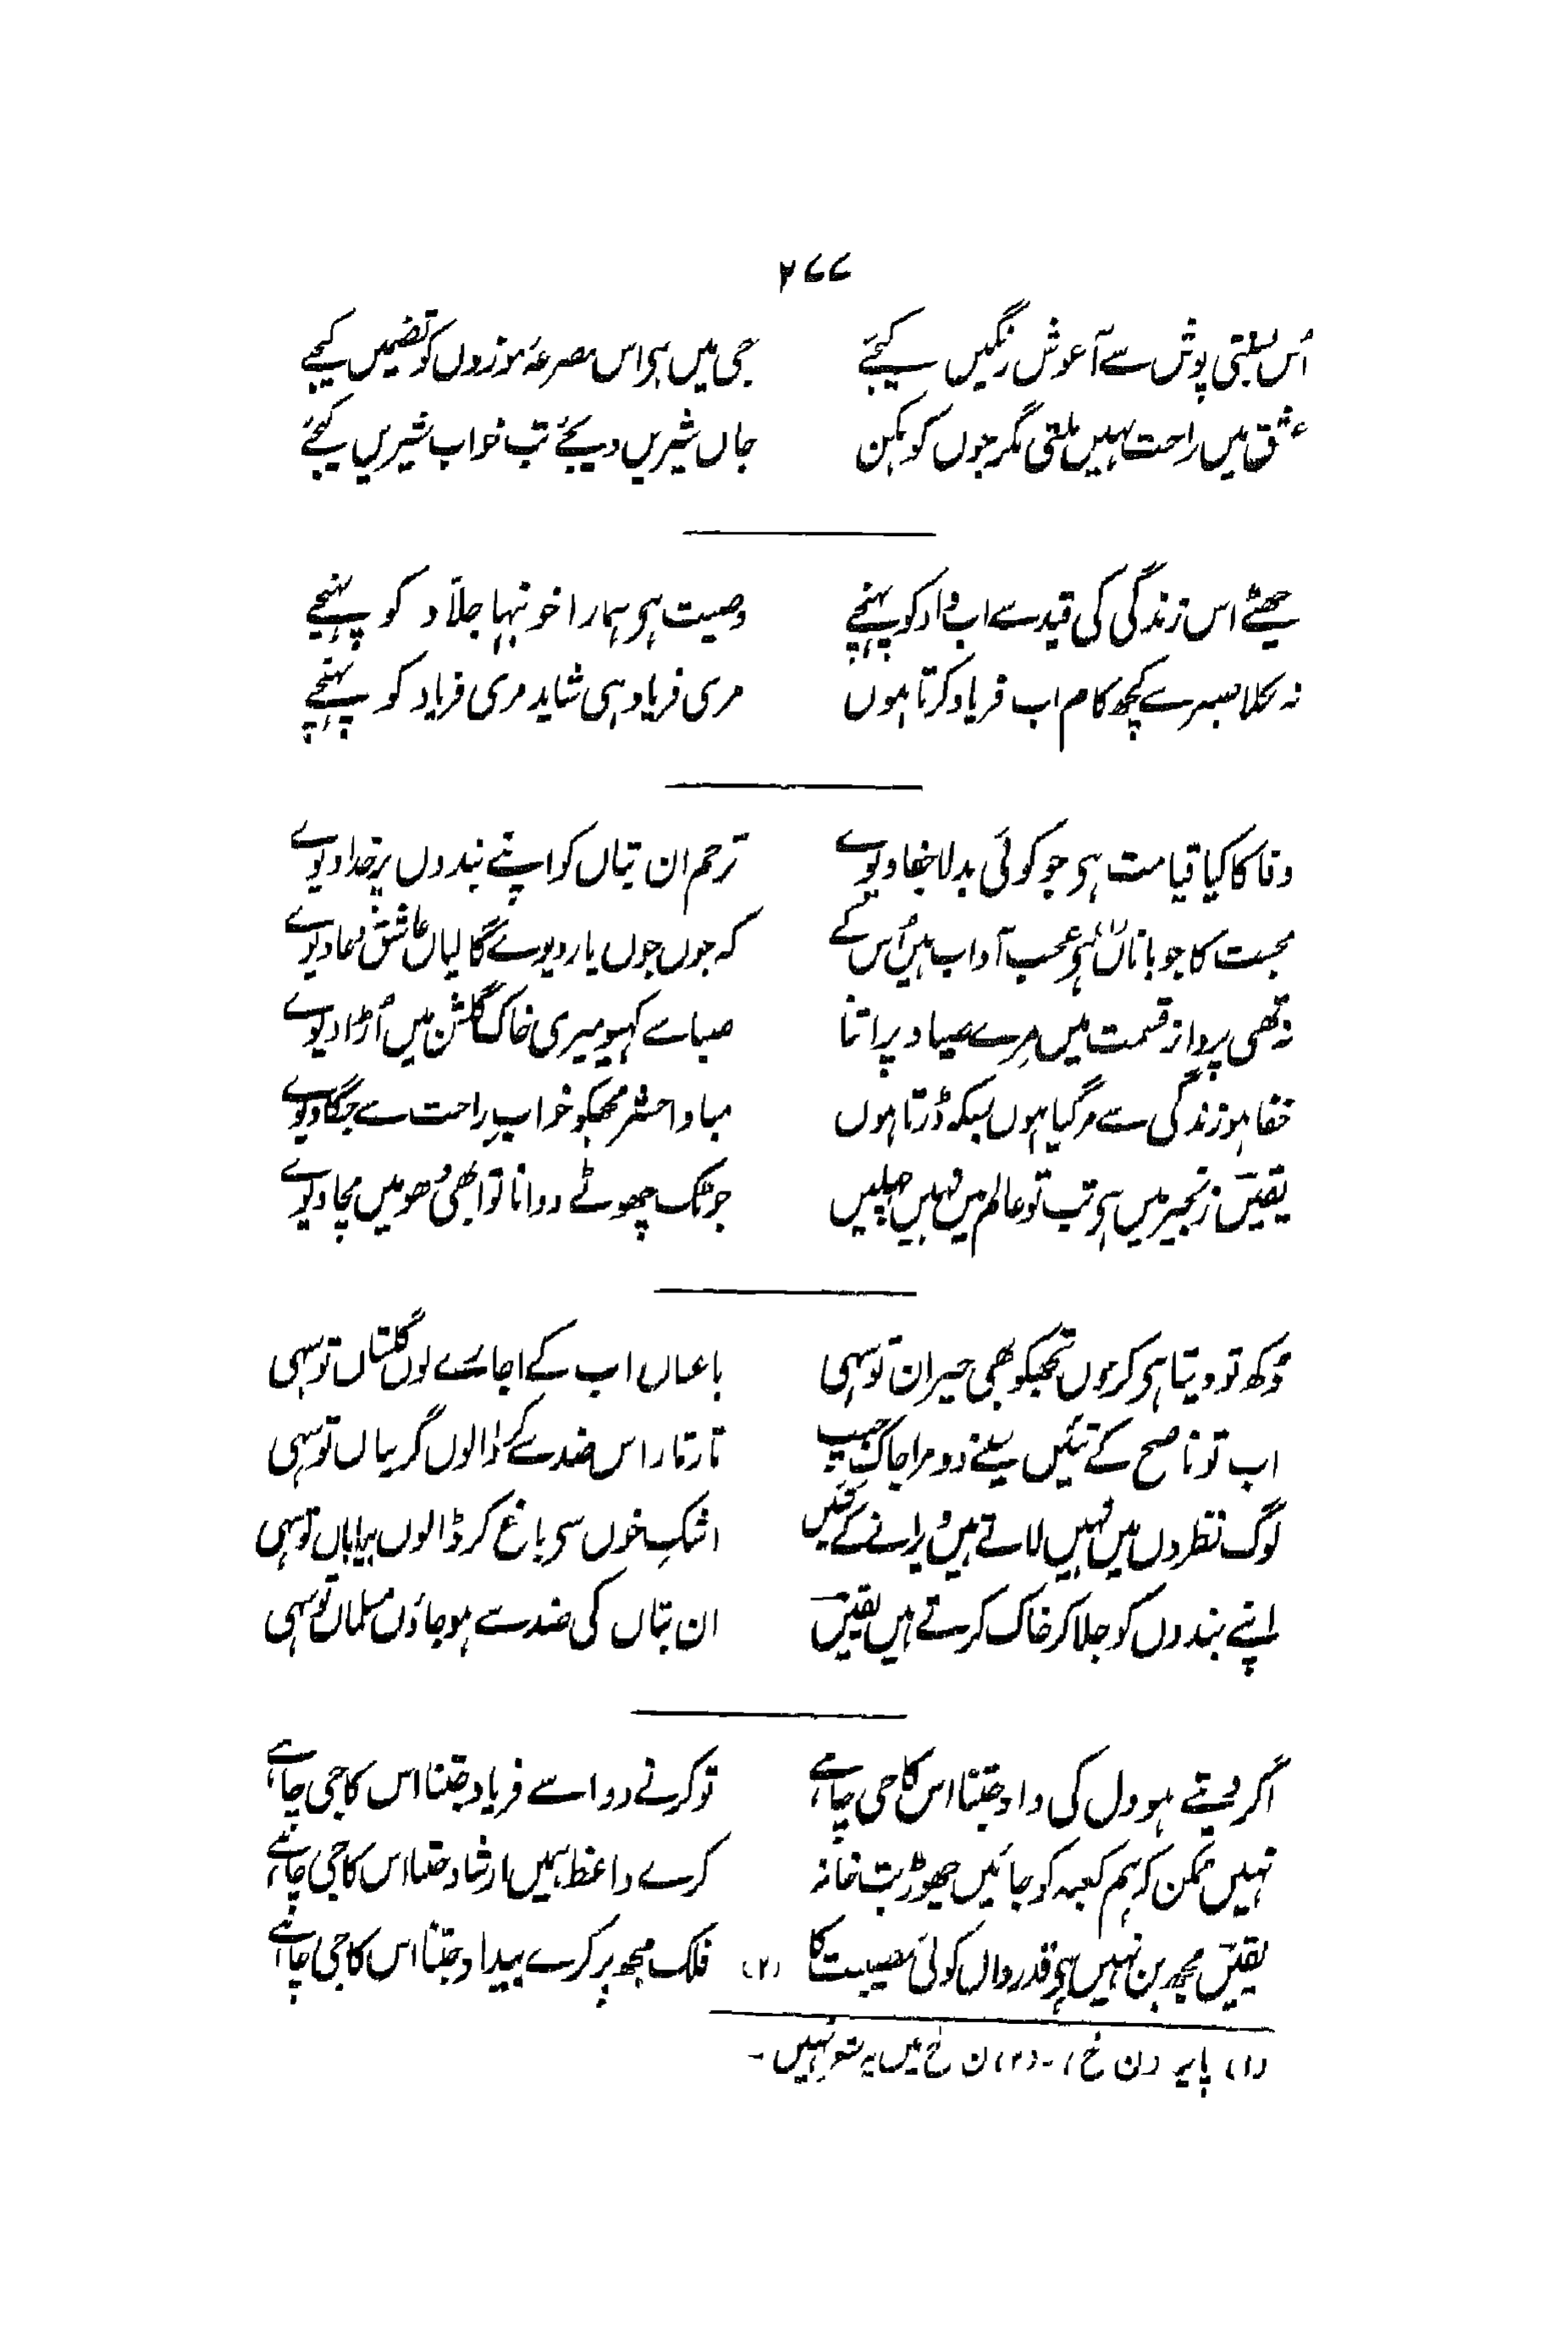 ۲۷۷
اُس بسنتی پوش سے آغوش رنگیں کیجے جی میں ہی اس مصرعۂ موزوں کو تضمیں کیجے
عشق میں راحت نہیں ملتی مگر جوں کوہکن جاں شیریں دیجئے تب خواب شیریں کیجئے
چھٹے اس زندگی کی قید سے اب داد کو پہنچے وصیت ہی ہمارا خونبہا جلّاد کو پہنچے
نہ نکلا صبر سے کچھ کام اب فریاد کرتا ہوں مری فریاد ہی شاید مری فریاد کو پہنچے
وفا کا کیا قیامت ہی جو کوئی بدلا جفا دیوے ترحم ان بتاں کو اپنے بندوں پر خدا دیوے
محبت کا جو باناں ہی عجب آداب ہیں اُس کے کہ جوں جوں یار دیوے گالیاں عاشق دعا دیوے
نہ تھی پرواز قسمت میں مرے صیاد پر اتنا صبا سے کہیو میری خاک گلشن میں اُڑا دیوے
خفا ہو زندگی سے مر گیا ہوں بسکہ ڈرتا ہوں مبادا حشر مجھکو خوابِ راحت سے جگا دیوے
یقیںؔ زنجیر میں ہی تب تو عالم میں نہیں چہلیں جو ٹک چھوٹے دوانا تو ابھی دُھومیں مچا دیوے
دُکھ تو دیتا ہی کروں تجھکو بھی حیران تو سہی باغباں اب کے اجاڑے لوں گلستاں تو سہی
اب تو ناصح کے تئیں سینے دو مرا چاکِ جیب تار تار اس ضد سے کر ڈالوں گریباں تو سہی
لوگ نظروں میں نہیں لاتے ہیں ویرانے کے تئیں اشکِ خوں سی باغ کر ڈالوں بیاباں تو سہی
اپنے بندوں کو جلا کر خاک کرتے ہیں یقیںؔ ان بتاں کی ضد سے ہو جاؤں مسلماں تو سہی
اگر دیتے ہو دل کی داد جتنا اس کا جی چاہے تو کرنے دو اسے فریاد جتنا اس کا جی چاہے
نہیں ممکن کہ ہم کعبہ کو جائیں چھوڑ بت خانہ کرے واعظ ہمیں ارشاد جتنا اس کا جی چاہے
یقیںؔ مجھ بن نہیں ہی قدرداں کوئی مصیبت کا (۲) فلک مجھ پر کرے بیداد جتنا اس کا جی چاہے
(۱) پایر (ن خ)۔ (۲) ن خ میں یہ شعر نہیں۔